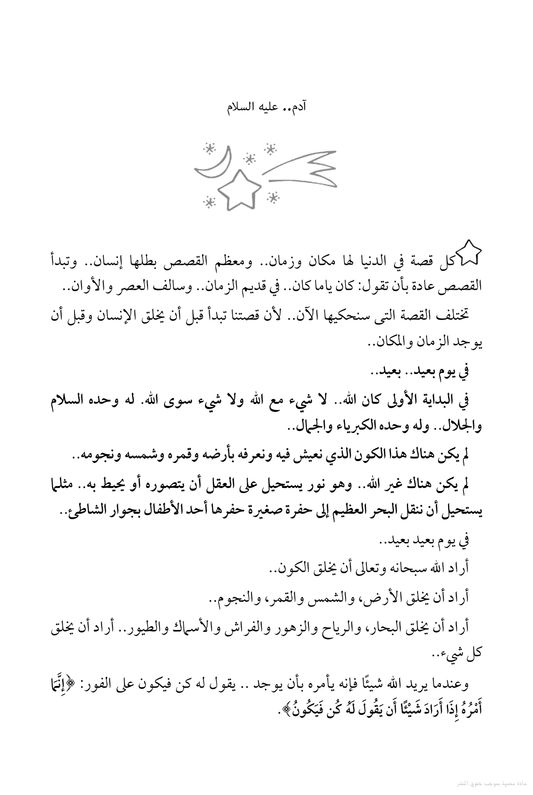 آدم.. عليه السلام
كل قصة في الدنيا لها مكان وزمان.. ومعظم القصص بطلها إنسان.. وتبدأ
القصص عادة بأن تقول: كان ياما كان.. في قديم الزمان.. وسالف العصر والأوان..
تختلف القصة التى سنحكيها الآن.. لأن قصتنا تبدأ قبل أن يخلق الإنسان وقبل أن
يوجد الزمان والمكان..
في يوم بعيد.. بعيد..
في البداية الأولى كان الله.. لا شيء مع الله ولا شيء سوى الله. له وحده السلام
والجلال.. وله وحده الكبرياء والجمال..
لم يكن هناك هذا الكون الذي نعيش فيه ونعرفه بأرضه وقمره وشمسه ونجومه..
لم يكن هناك غير الله.. وهو نور يستحيل على العقل أن يتصوره أو يحيط به.. مثلما
يستحيل أن ننقل البحر العظيم إلى حفرة صغيرة حفرها أحد الأطفال بجوار الشاطئ..
في يوم بعيد بعيد..
أراد الله سبحانه وتعالى أن يخلق الكون..
أراد أن يخلق الأرض، والشمس والقمر، والنجوم..
أراد أن يخلق البحار، والرياح والزهور والفراش والأسماك والطيور.. أراد أن يخلق
كل شيء..
وعندما يريد الله شيئًا فإنه يأمره بأن يوجد .. يقول له كن فيكون على الفور: ﴿إِنَّمَا
أَمْرُهُ إِذَا أَرَادَ شَيْئًا أَن يَقُولَ لَهُ كُن فَيَكُونُ﴾.
مادة محمية بموجب حقوق النشر